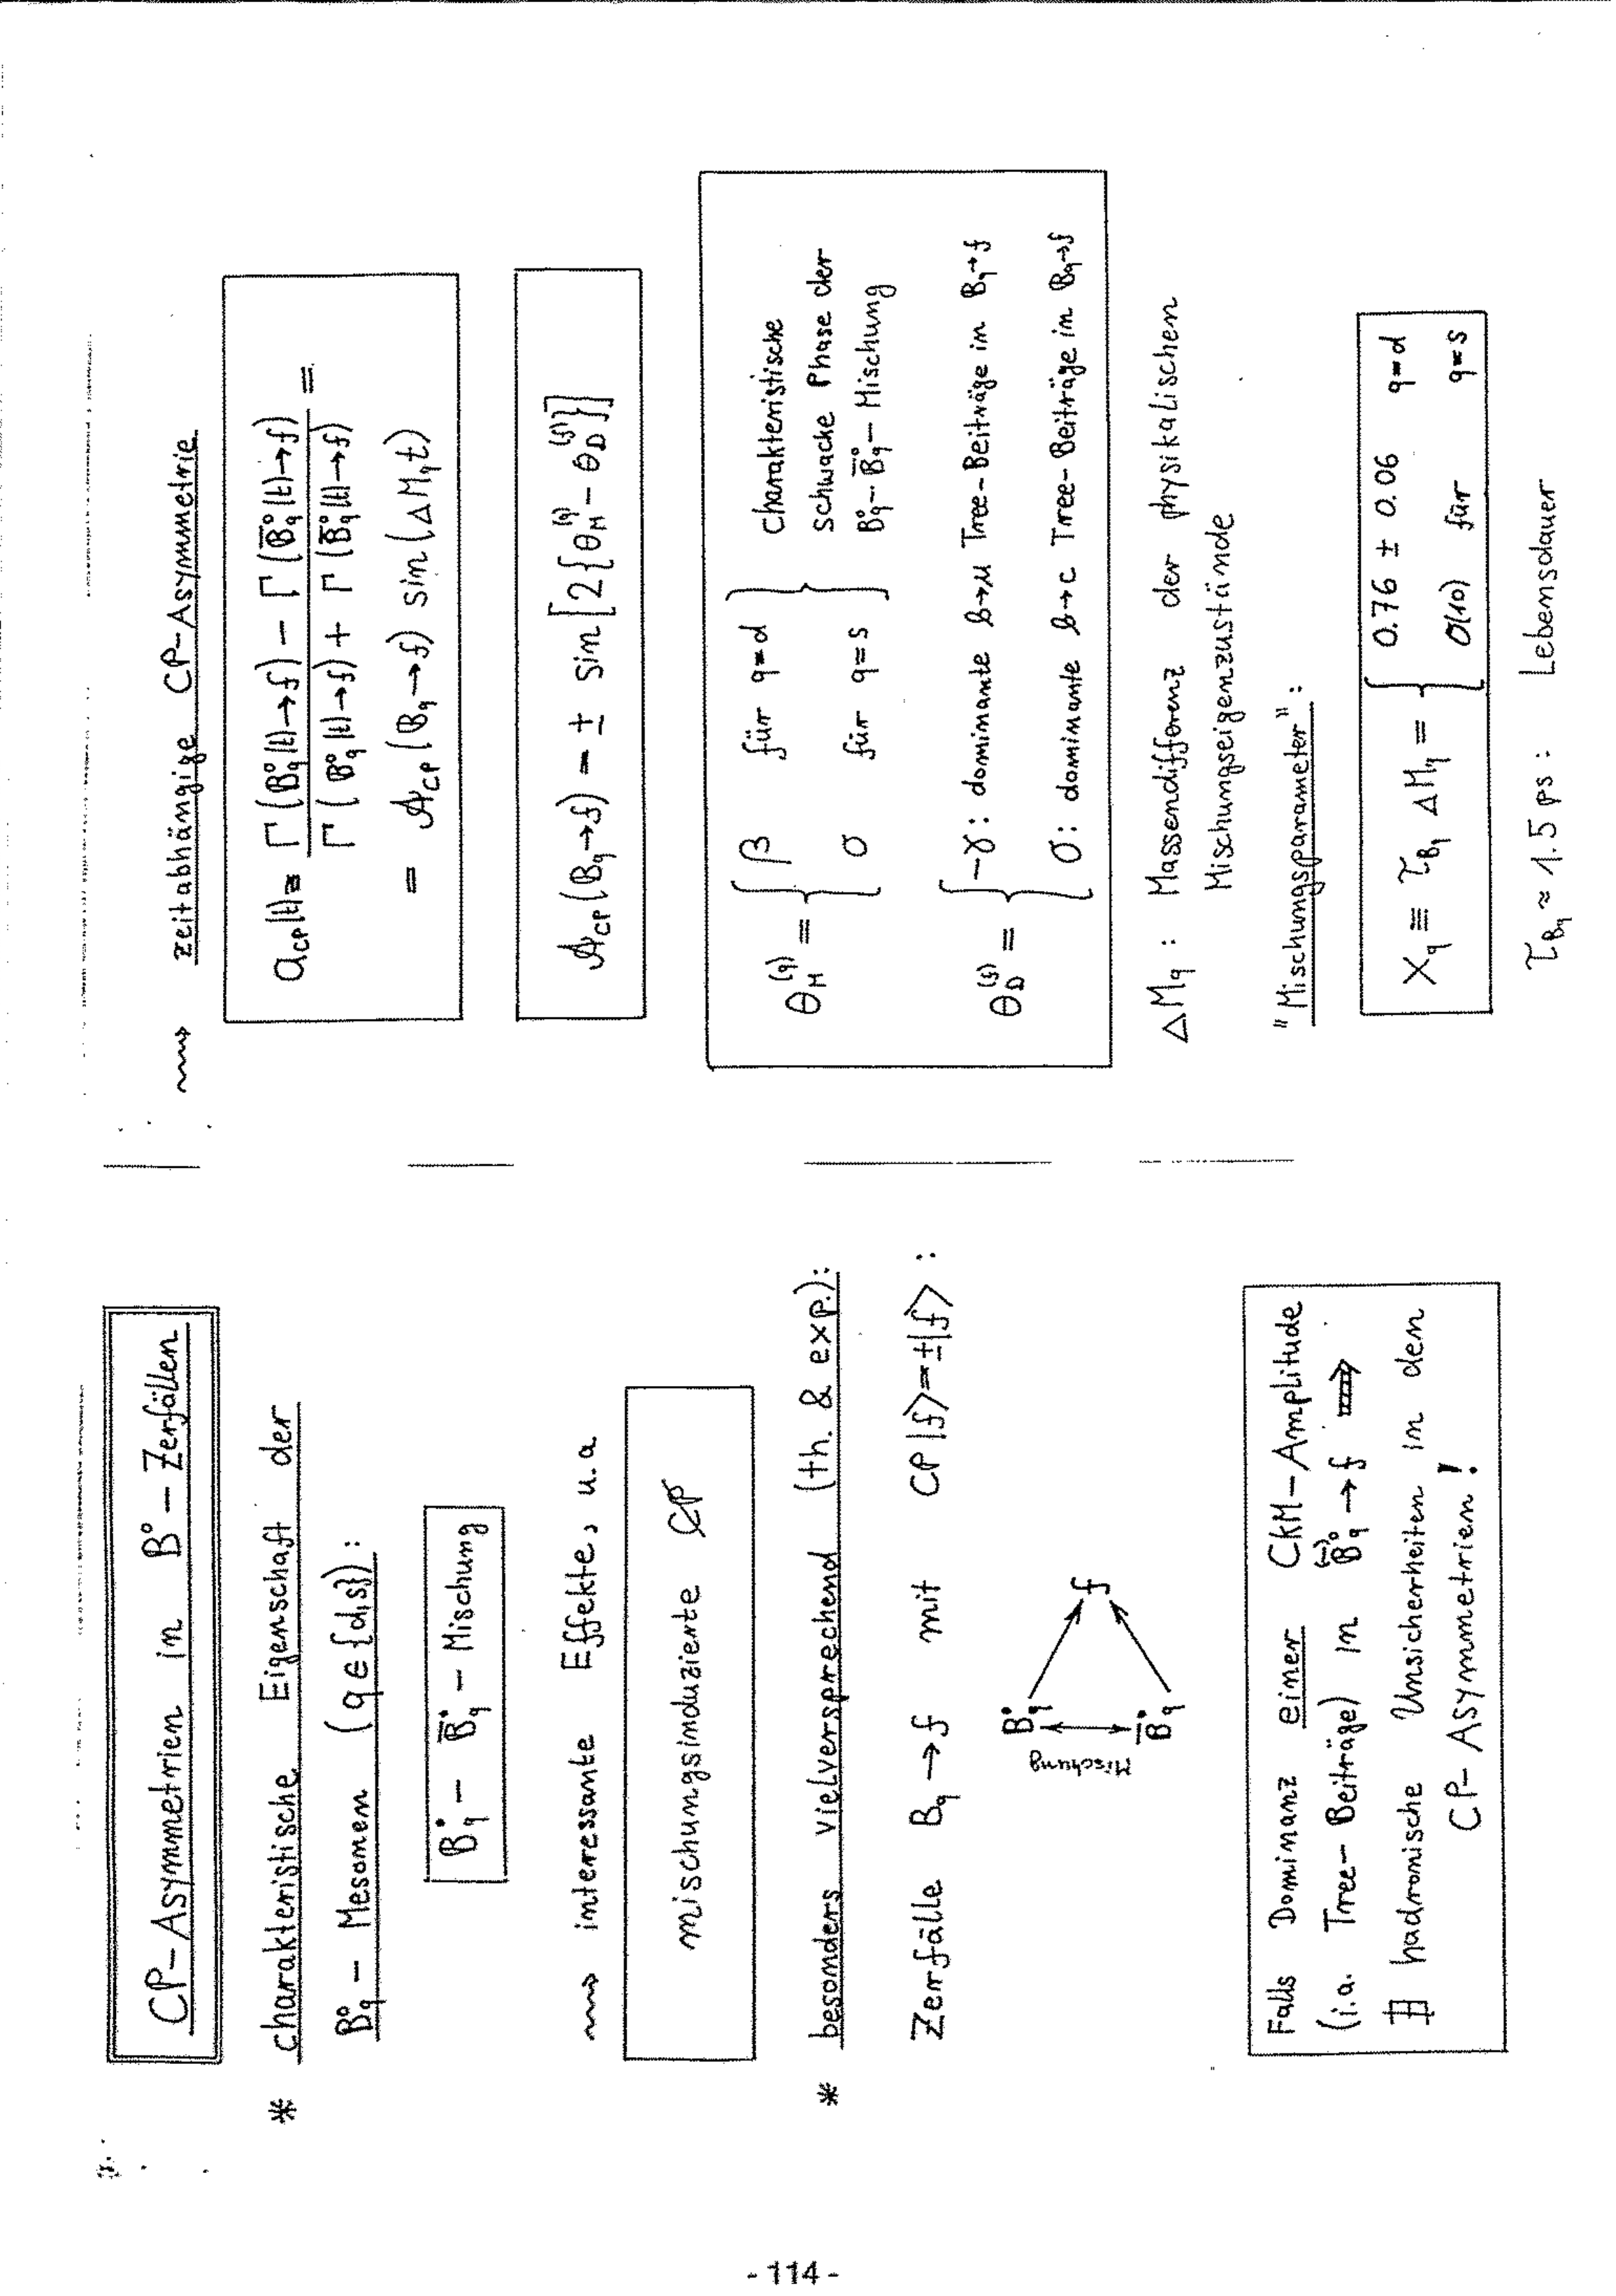 CP-Asymmetrien in B⁰ - Zerfällen
* charakteristische Eigenschaft der
B⁰_q - Mesonen (q ∈ {d,s}):
B⁰_q - B̄⁰_q - Mischung
⇝ interessante Effekte, u.a
mischungsinduzierte C̸P̸
* besonders vielversprechend (th. & exp.):
Zerfälle B_q → f mit CP|f⟩=±|f⟩ :
B⁰_q
Mischung
f
B̄⁰_q
Falls Dominanz einer CKM-Amplitude
(i.a. Tree-Beiträge) in (B̄)⁰_q → f ⟹
∄ hadronische Unsicherheiten in den
CP-Asymmetrien!
⇝ zeitabhängige CP-Asymmetrie
a_CP(t) ≡ [Γ(B⁰_q(t)→f) - Γ(B̄⁰_q(t)→f)] / [Γ(B⁰_q(t)→f) + Γ(B̄⁰_q(t)→f)] =
= 𝒜_CP(B_q→f) sin(ΔM_q t)
𝒜_CP(B_q→f) = ± sin[2{θ_M^(q) - θ_D^(f)}]
θ_M^(q) = { β für q=d } charakteristische
schwache Phase der
0 für q=s } B⁰_q - B̄⁰_q - Mischung
θ_D^(f) = { -γ: dominante b→u Tree-Beiträge in B_q→f
0: dominante b→c Tree-Beiträge in B_q→f
ΔM_q : Massendifferenz der physikalischen
Mischungseigenzustände
"Mischungsparameter":
X_q ≡ τ_Bq ΔM_q = { 0.76 ± 0.06 q=d
O(10) für q=s
τ_Bq ≈ 1.5 ps : Lebensdauer
- 114 -